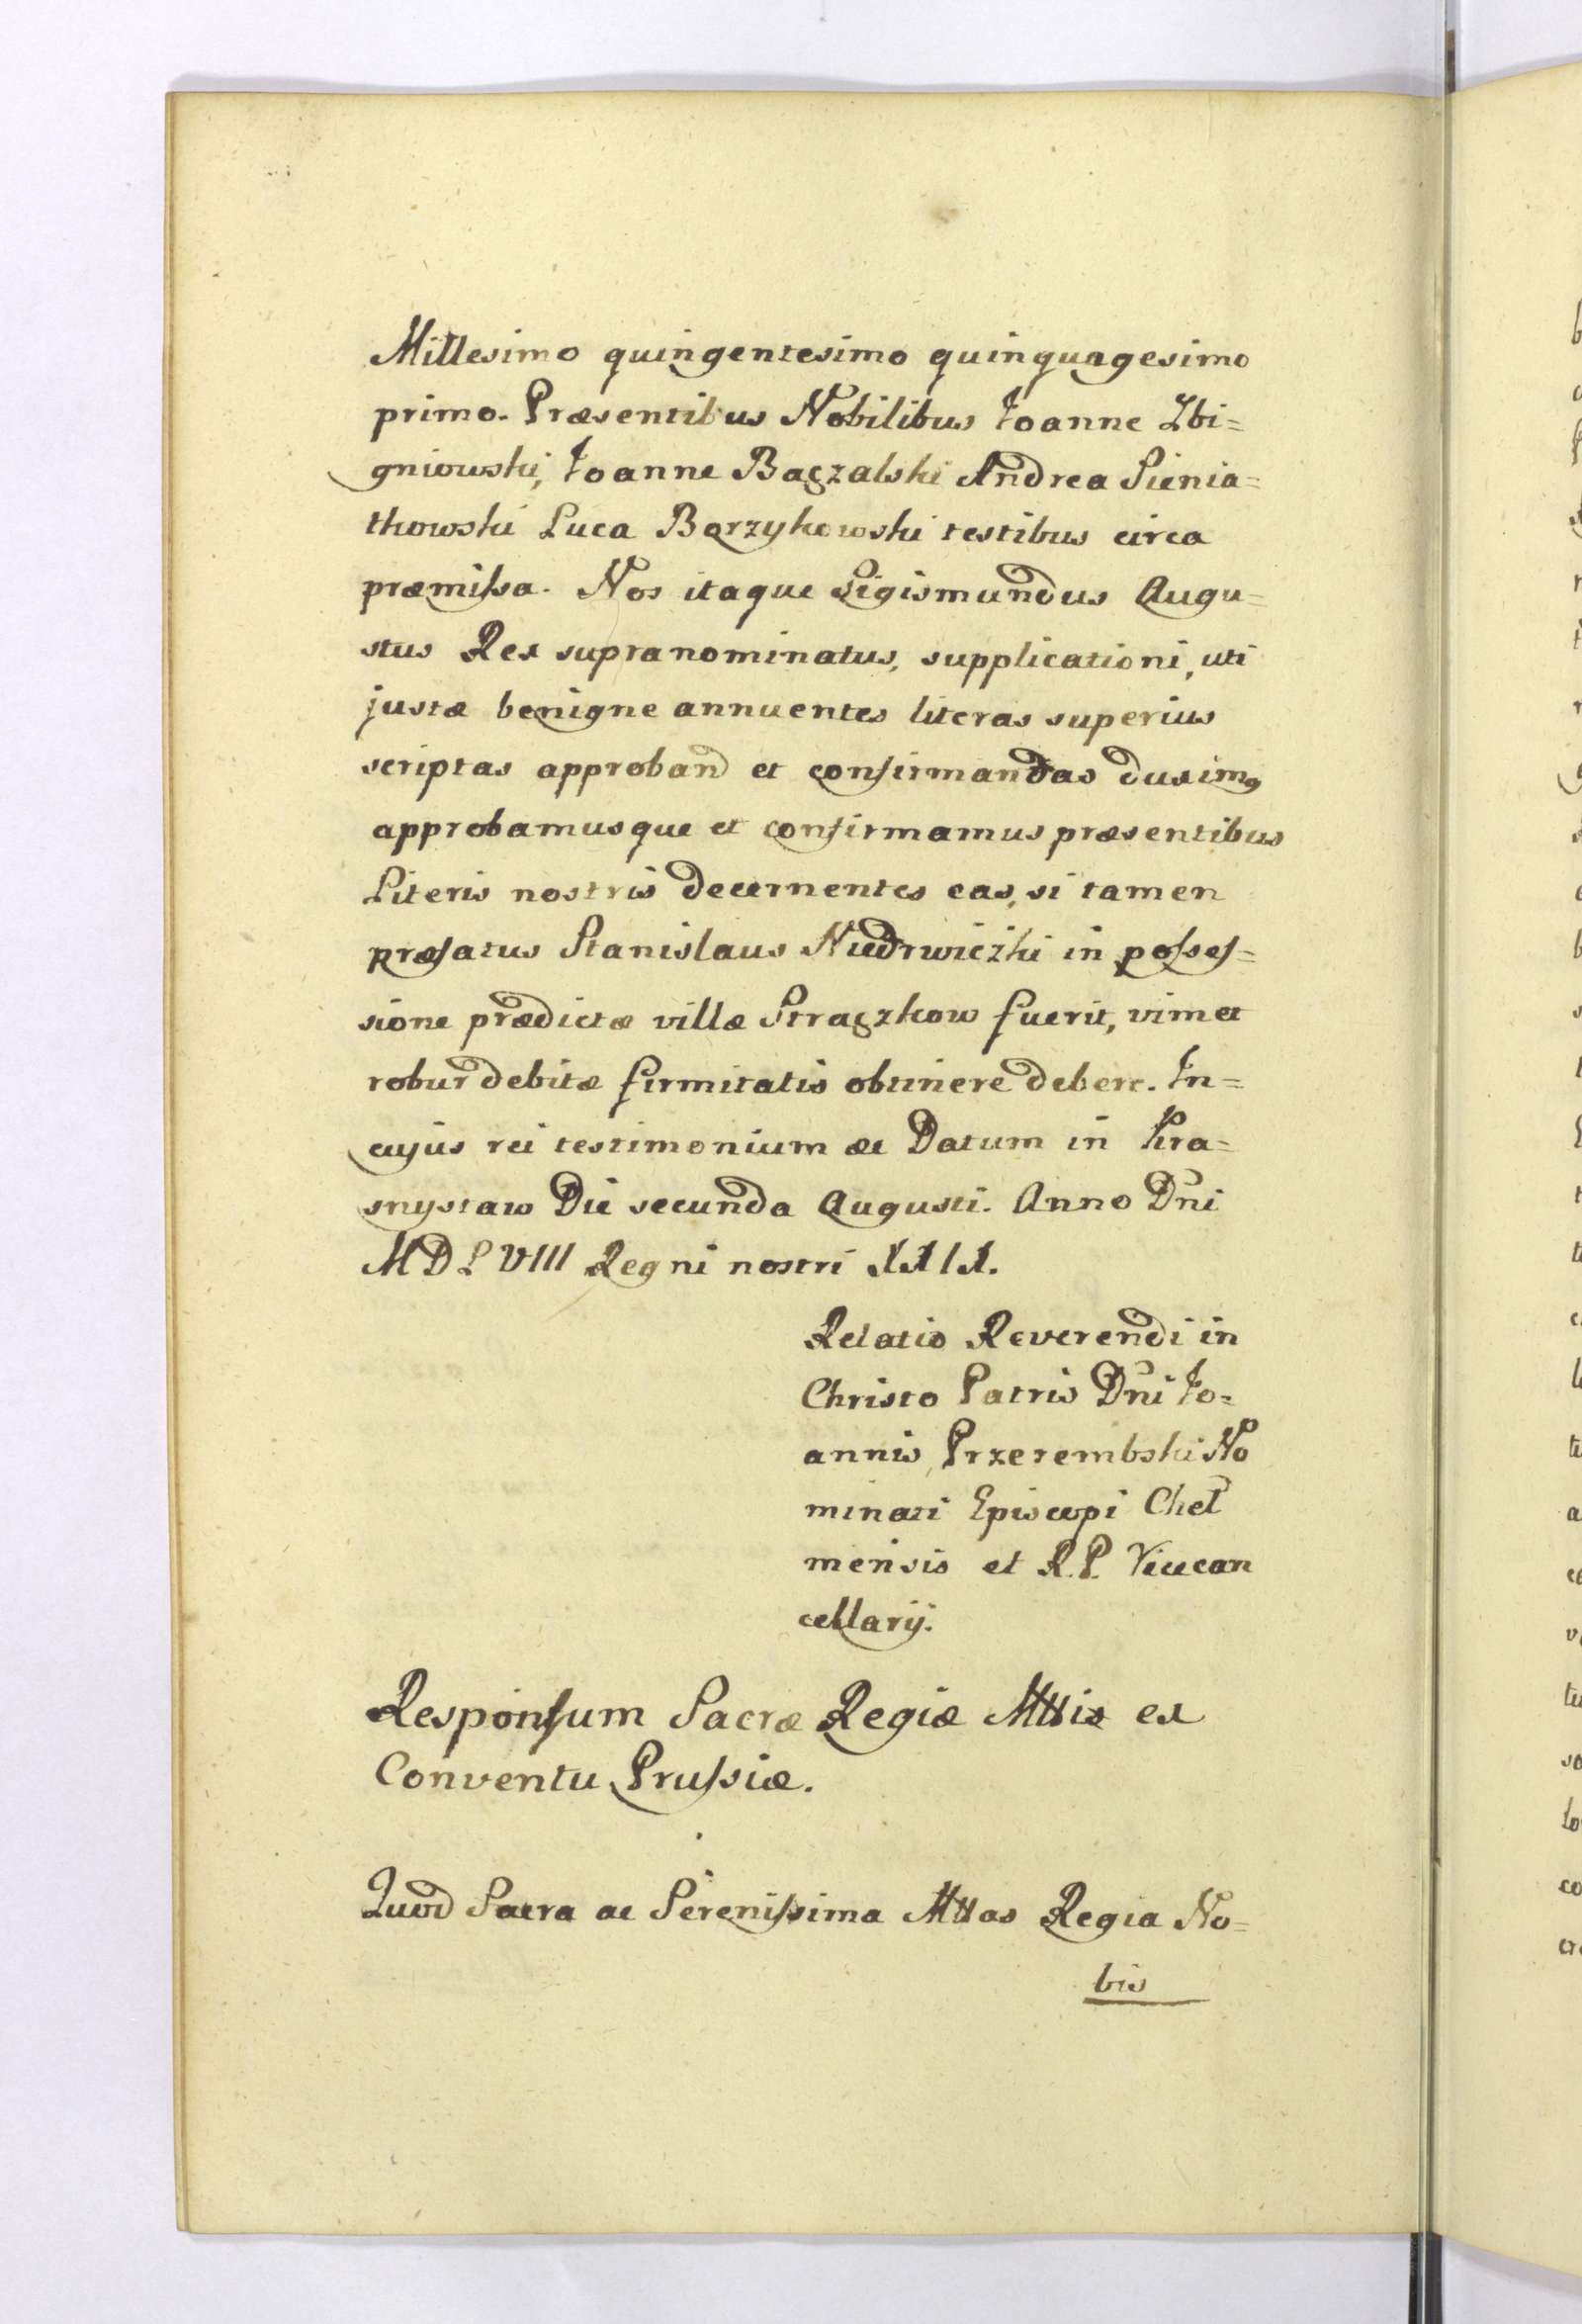 Millesimo quingentesimo quinquagesimo
primo. Præsentibus Nobilibus Joanne Zbi=
gniowski, Joanne Bączalski Andrea Pienia=
tkowski Luca Borzykowski testibus circa
præmissa. Nos itaque Sigismundus Augu=
stus Rex supranominatus, supplicationi, uti
justæ benigne annuentes literas superius
scriptas approband et confirmandas duximq
approbamusque et confirmamus præsentibus
Literis nostris decernentes eas, si tamen
præfatus Stanislaus Niedrwiczki in posses=
sione prædictæ villæ Strączkow fuerit, vim et
robur debitæ firmitatis obtinere debere. In=
cujus rei testimonium &c Datum in Kra=
snystaw Die secunda Augusti. Anno Dni
MDLVIII Regni nostri XXIX.
Relatio Reverendi in
Christo Patris Dni Jo=
annis Przerembski No
minati Episcopi Chel
mensis et R. P. Vicecan
cellarij.
Responsum Sacræ Regiæ Mttis ex
Conventu Prussiæ.
Quod Sacra ac Serenissima Mttas Regia No=
bis